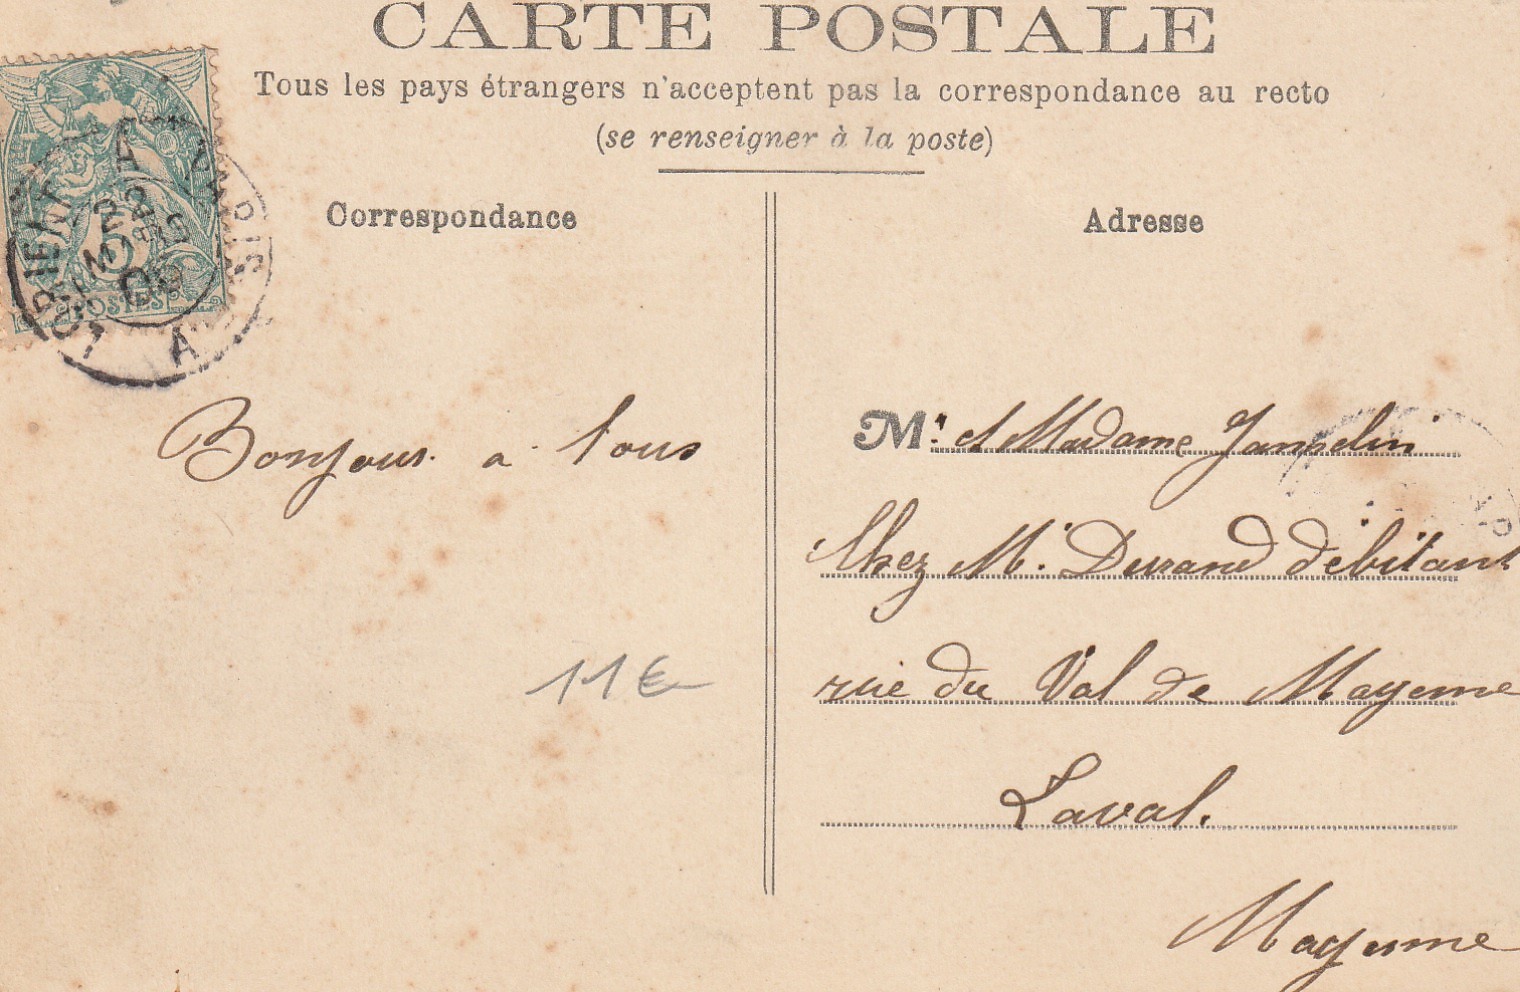 CARTE POSTALE
Tous les pays étrangers n'acceptent pas la correspondance au recto
(se renseigner à la poste)
LORIENT A PARIS
A
22
MARS
09
5
POSTES
Correspondance
Bonjour a tous
11€
Adresse
M. et Madame
Chez M. Durand débitant
rue du Val de Mayenne
Laval.
Mayenne